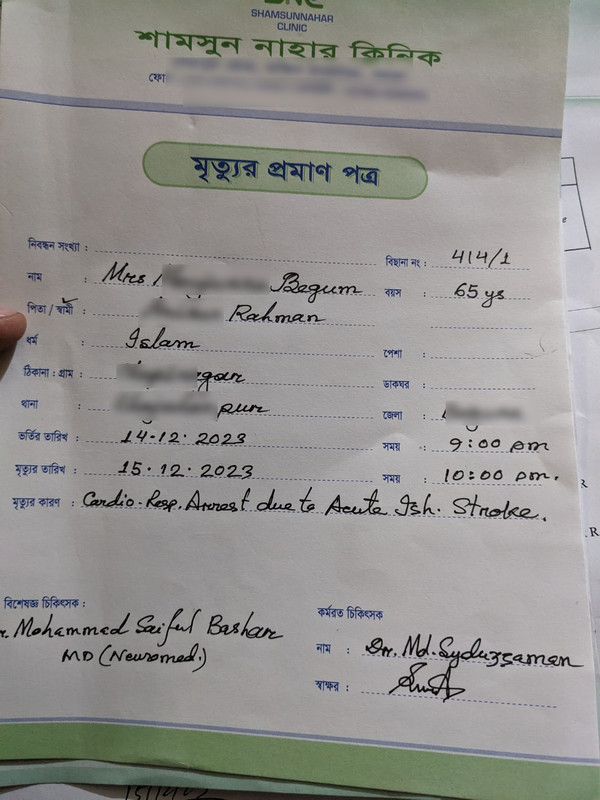 SHAMSUNNAHAR
CLINIC
শামসুন নাহার ক্লিনিক
ফো
মৃত্যুর প্রমাণ পত্র
নিবন্ধন সংখ্যা : বিছানা নং : 414/1
নাম : Mrs Begum বয়স : 65 ys
পিতা / স্বামী : Rahman
ধর্ম : Islam পেশা :
ঠিকানা : গ্রাম : gar ডাকঘর :
থানা : pur জেলা :
ভর্তির তারিখ : 14.12.2023 সময় : 9:00 pm
মৃত্যুর তারিখ : 15.12.2023 সময় : 10:00 pm.
মৃত্যুর কারণ : Cardio-Resp. Arrest due to Acute Ish. Stroke.
বিশেষজ্ঞ চিকিৎসক :
কর্মরত চিকিৎসক
r. Mohammad Saiful Bashar
MD (Neuromed.)
নাম : Dr. Md. Syduzzaman
স্বাক্ষর :